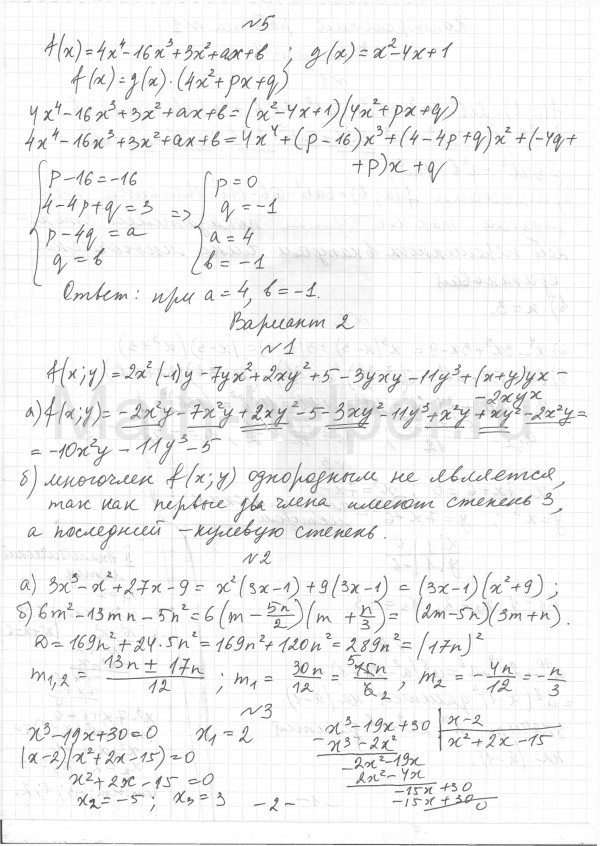 №5
f(x)=4x⁴-16x³+3x²+ax+в ; g(x)=x²-4x+1
f(x)=g(x)·(4x²+px+q)
4x⁴-16x³+3x²+ax+в=(x²-4x+1)(4x²+px+q)
4x⁴-16x³+3x²+ax+в=4x⁴+(p-16)x³+(4-4p+q)x²+(-4q+
+p)x+q
{ p-16=-16 { p=0
4-4p+q=3 => q=-1
p-4q=a a=4
q=в в=-1
Ответ: при a=4, в=-1.
Вариант 2
№1
f(x;y)=2x²(-1)y-7yx²+2xy²+5-3yxy-11y³+(x+y)yx-
-2xyx
а) f(x;y)=-2x²y-7x²y+2xy²-5-3xy²-11y³+x²y+xy²-2x²y=
=-10x²y-11y³-5
б) многочлен f(x;y) однородным не является,
так как первые два члена имеют степень 3,
а последней -нулевую степень.
№2
а) 3x³-x²+27x-9=x²(3x-1)+9(3x-1)=(3x-1)(x²+9);
б) 6m²-13mn-5n²=6(m-5n/2)(m+n/3)=(2m-5n)(3m+n).
D=169n²+24·5n²=169n²+120n²=289n²=(17n)²
m1,2=(13n±17n)/12 ; m1=30n/12=5 15n/6 2; m2=-4n/12=-n/3
№3
x³-19x+30=0 x1=2 x³-19x+30 | x-2
(x-2)(x²+2x-15)=0 x³-2x² x²+2x-15
x²+2x-15=0 -2x²-19x
x2=-5; x3=3 2x²-4x
-15x+30
-15x+30
0
-2-
Math-helper.ru